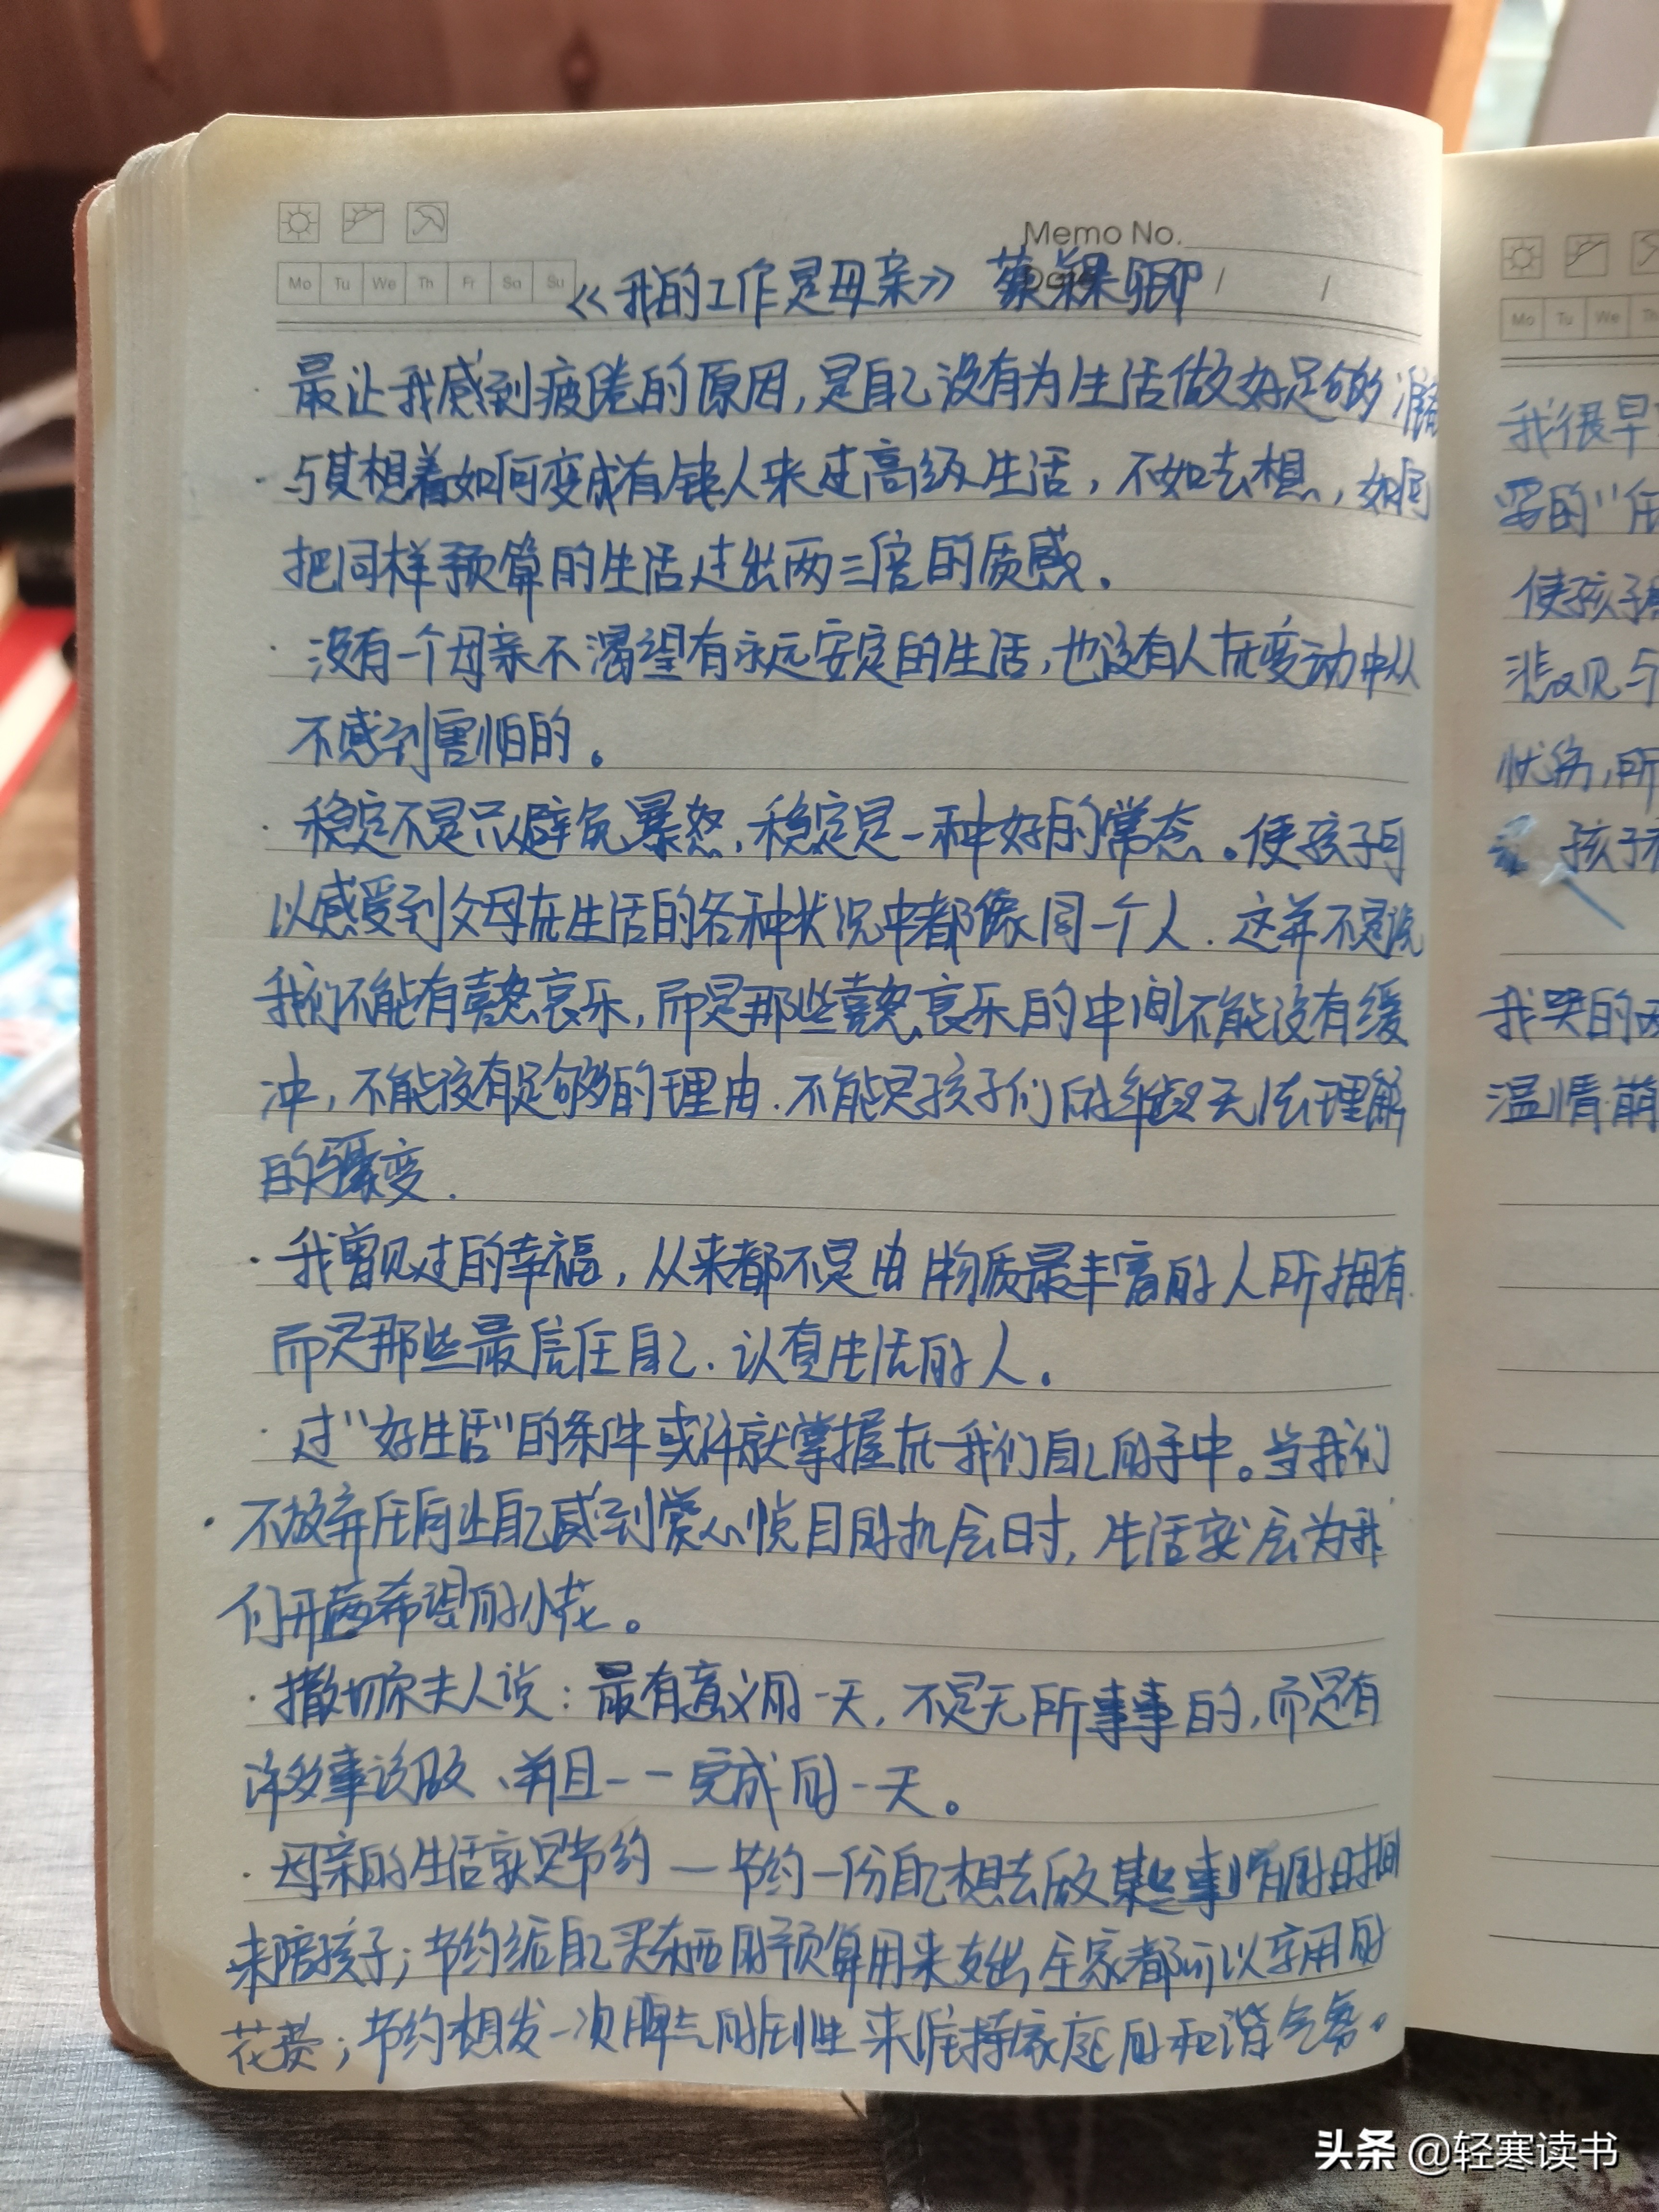 Memo No.
Mo Tu We Th Fr Sa Su
《我的工作是母亲》 蔡颖卿
· 最让我感到疲倦的原因,是自己没有为生活做好足够准备
· 与其想着如何变成有钱人来过高级生活,不如去想,如何
把同样预算的生活过出两三倍的质感。
· 没有一个母亲不渴望有永远安定的生活,也没有人在变动中从
不感到害怕的。
· 稳定不是只避免暴怒,稳定是一种好的常态。使孩子可
以感受到父母在生活的各种状况中都像同一个人.这并不是说
我们不能有喜怒哀乐,而是那些喜怒哀乐的中间不能没有缓
冲,不能没有足够的理由.不能是孩子们的年龄无法理解
的骤变.
· 我曾见过的幸福,从来都不是由物质最丰富的人所拥有.
而是那些最信任自己.认真生活的人。
· 过"好生活"的条件或许就掌握在我们自己的手中。当我们
· 不放弃任何让自己感到赏心悦目的机会时,生活就会为我
们开满希望的小花。
· 撒切尔夫人说:最有意义的一天,不是无所事事的,而是有
许多事该做、并且一一完成的一天。
· 母亲的生活就是节约—节约一份自己想去做某些事情的时间
来陪孩子;节约给自己买东西的预算用来支出全家都可以享用的
花费;节约想发一次脾气的任性来维持家庭的和谐气氛。
Mo Tu We Th
我很早
要的"任
使孩子
悲观与
忧伤,所
孩子
我哭的
温情.崩
头条 @轻寒读书